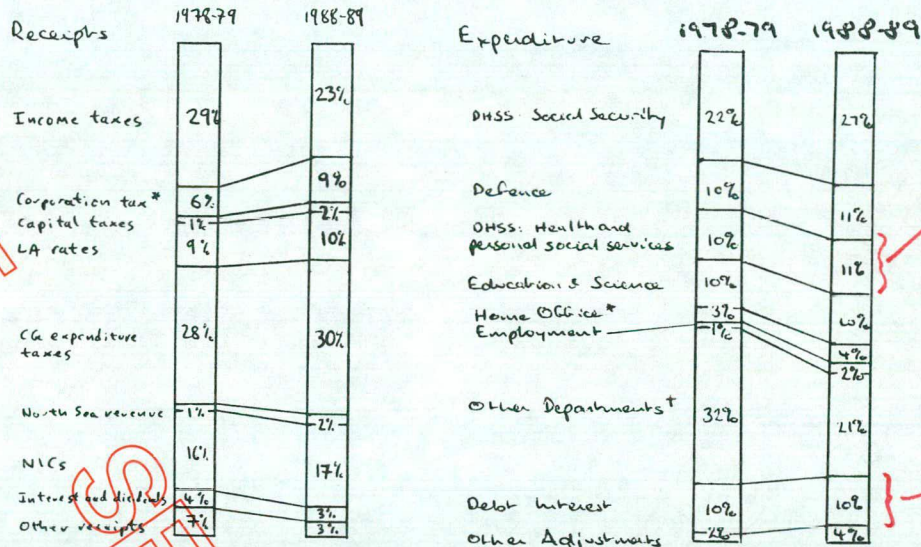 Receipts
1978-79
1988-89
Income taxes
29%
23%
Corporation tax*
6%
9%
Capital taxes
1%
2%
LA rates
9%
10%
CG expenditure
taxes
28%
30%
North Sea revenue
1%
2%
NICs
16%
17%
Interest and dividends
4%
3%
Other receipts
7%
3%
Expenditure
1978-79
1988-89
DHSS: Social Security
22%
27%
Defence
10%
11%
DHSS: Health and
personal social services
10%
11%
Education & Science
10%
10%
Home Office*
3%
4%
Employment
1%
2%
Other Departments†
32%
21%
Debt Interest
10%
10%
Other Adjustments
2%
4%